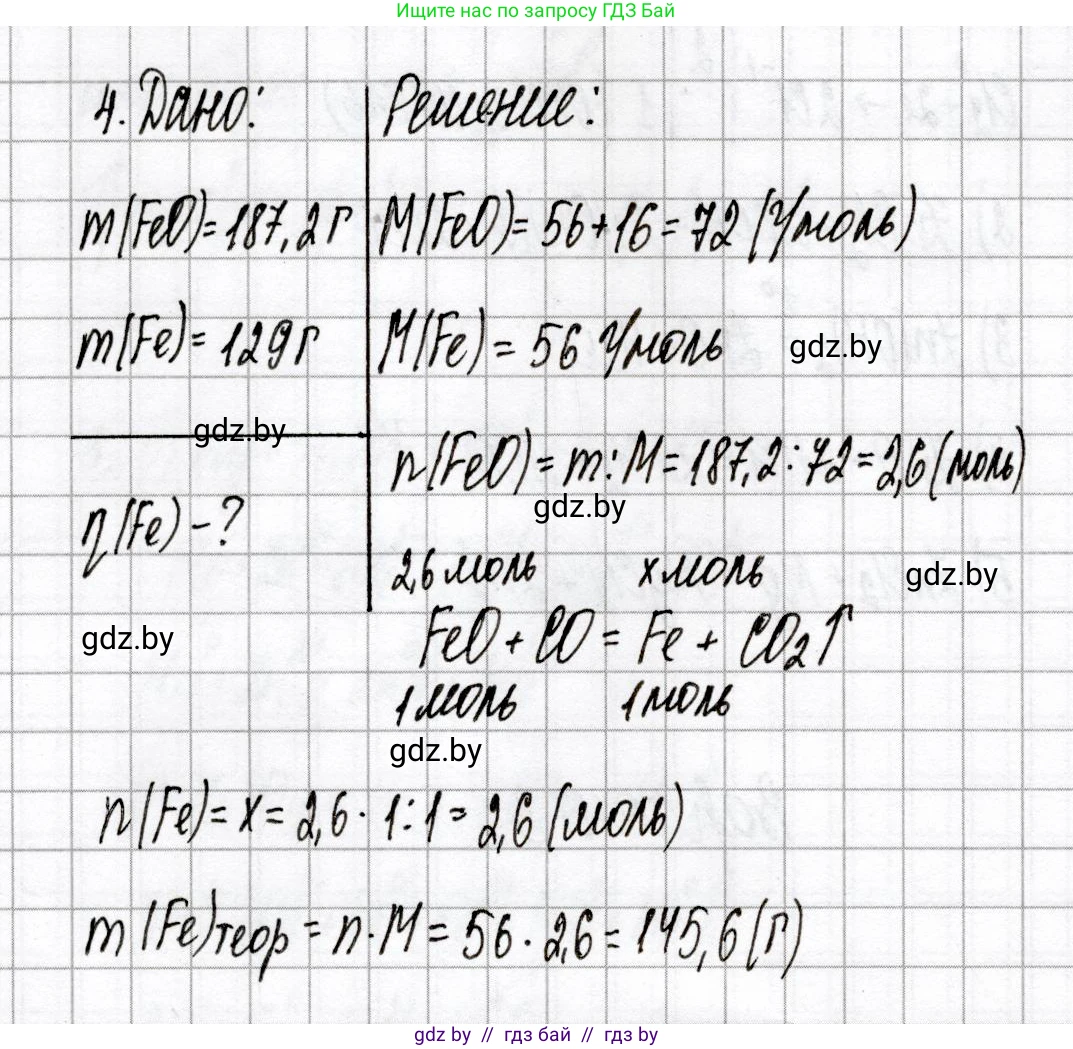 Ищите нас по запросу ГДЗ Бай
4. Дано:
Решение:
m(FeO) = 187,2 г
M(FeO) = 56 + 16 = 72 (г/моль)
m(Fe) = 129 г
M(Fe) = 56 г/моль
gdz.by
gdz.by
n(FeO) = m : M = 187,2 : 72 = 2,6 (моль)
gdz.by
η(Fe) - ?
2,6 моль x моль
gdz.by
gdz.by
FeO + CO = Fe + CO₂↑
1 моль 1 моль
gdz.by
n(Fe) = x = 2,6 · 1 : 1 = 2,6 (моль)
m(Fe)теор = n · M = 56 · 2,6 = 145,6 (г)
gdz.by // гдз бай // гдз by